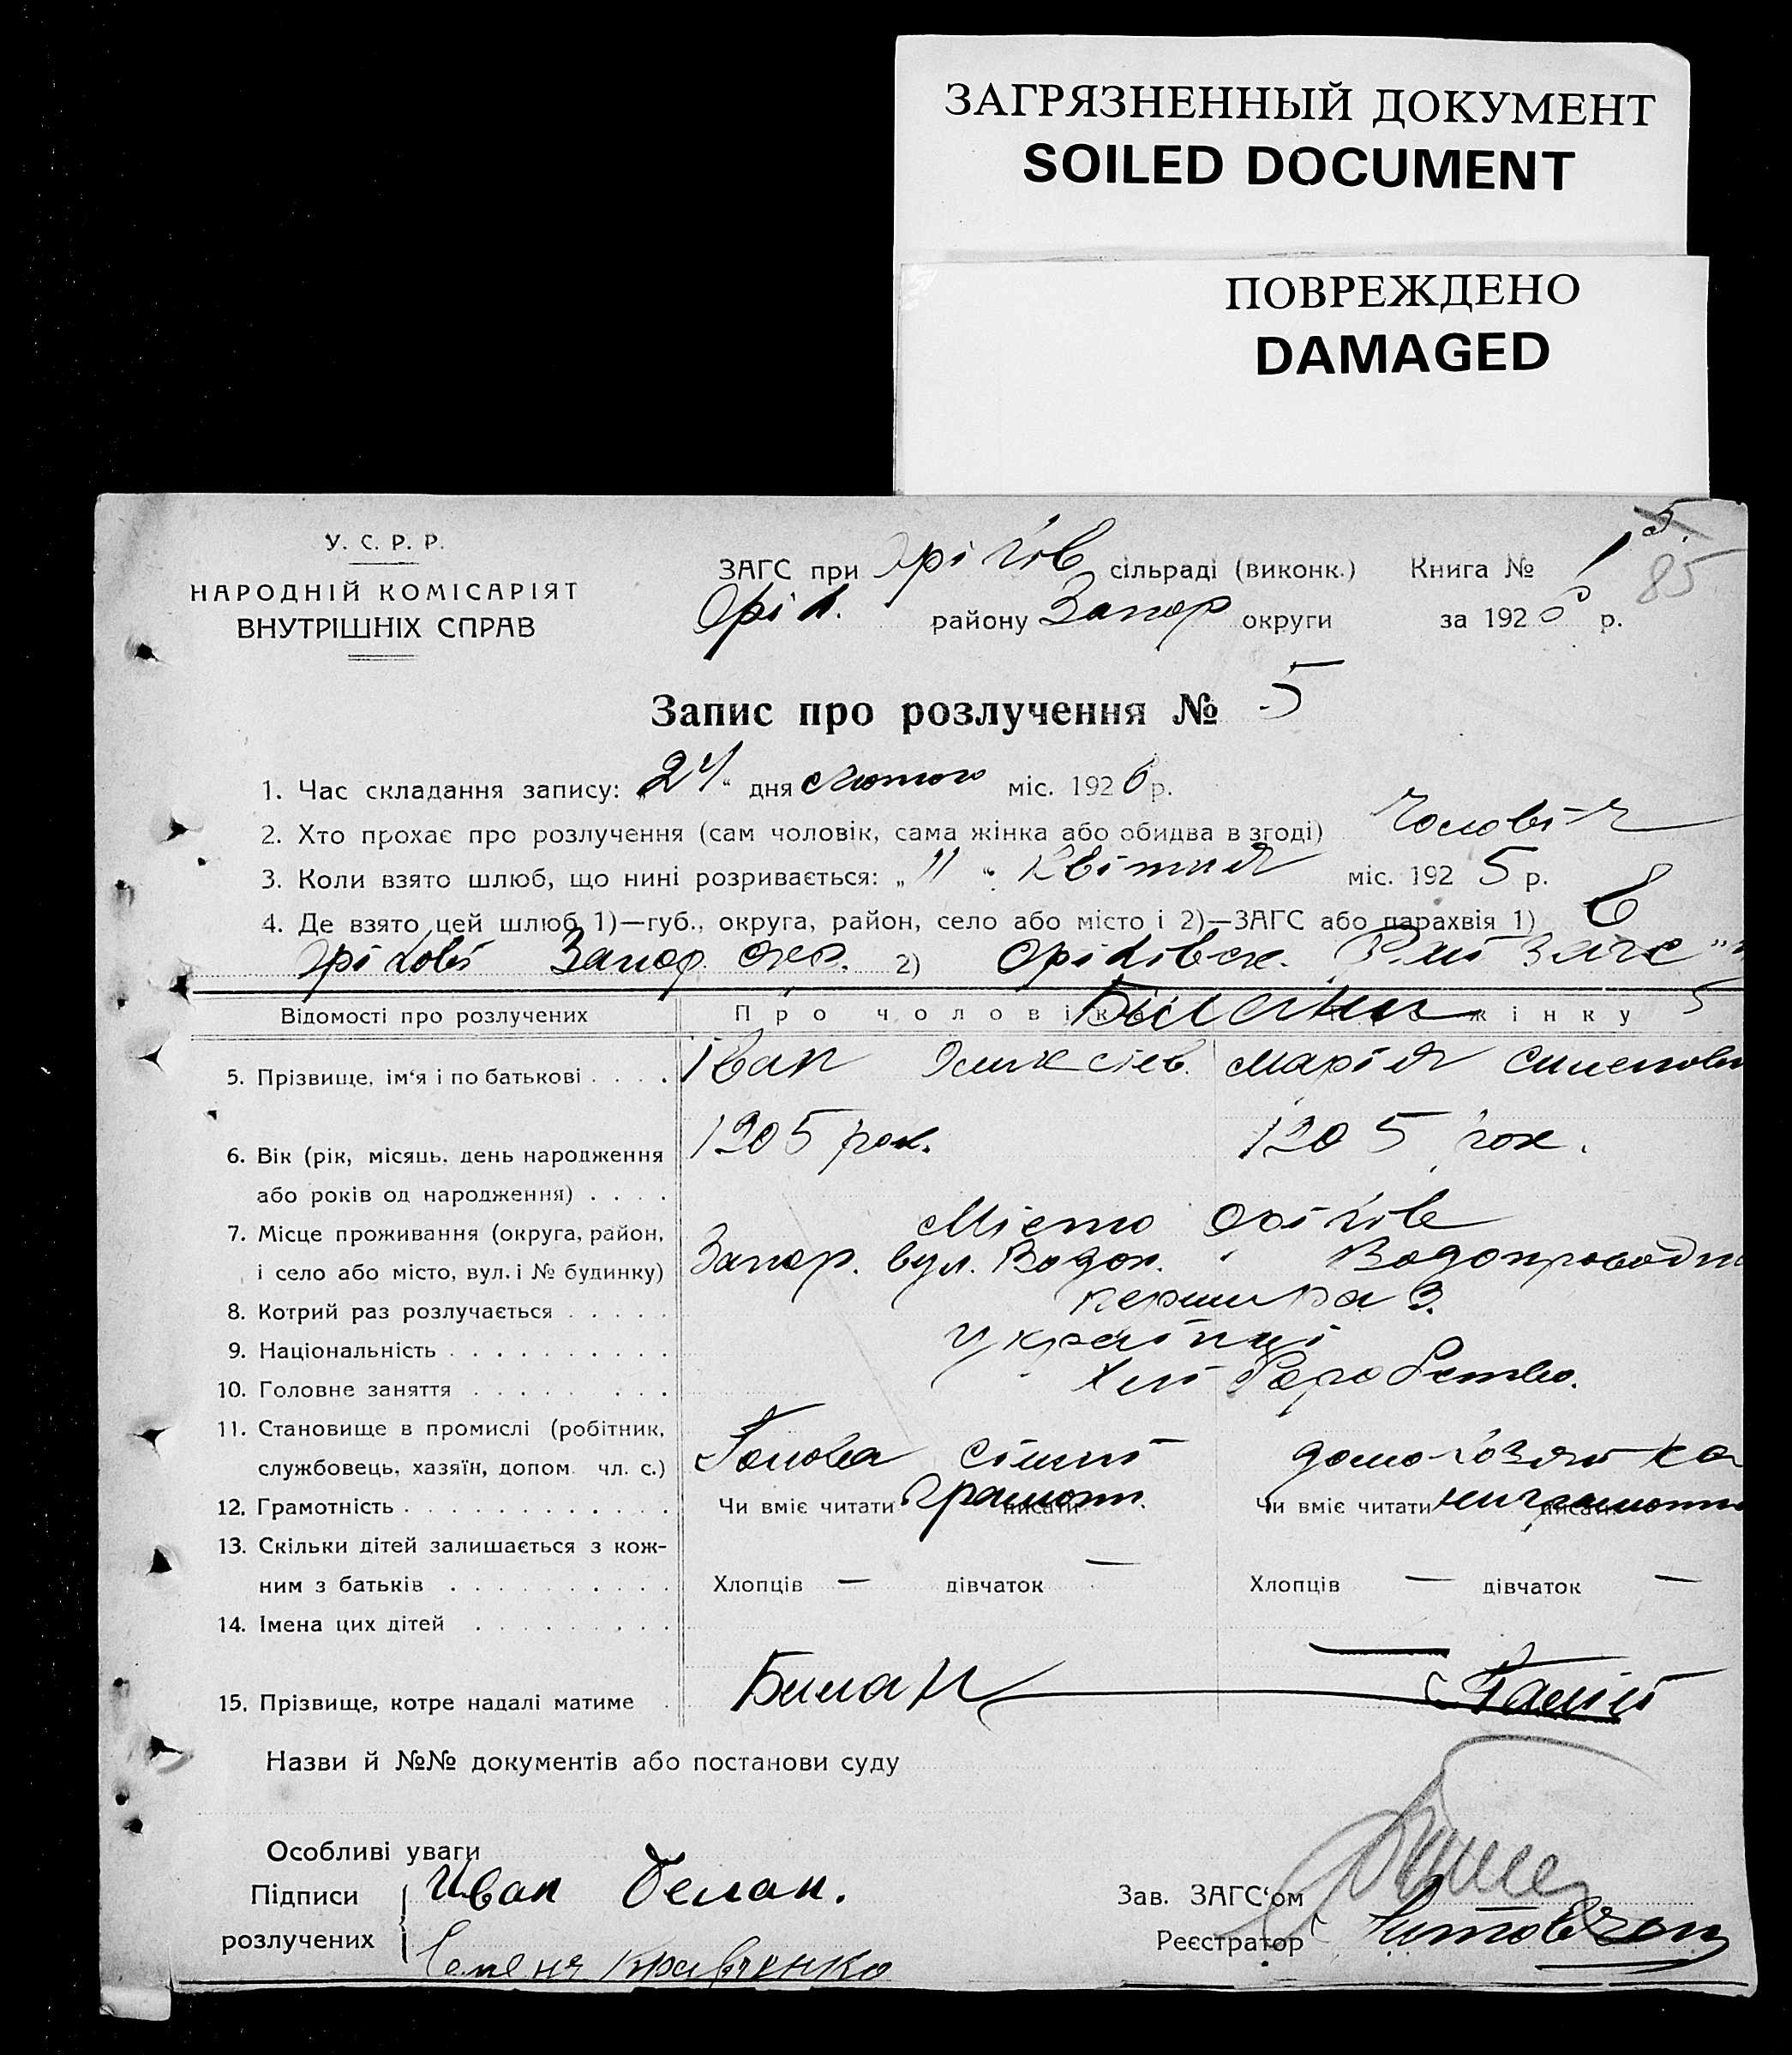 ЗАГРЯЗНЕННЫЙ ДОКУМЕНТ
SOILED DOCUMENT
ПОВРЕЖДЕНО
DAMAGED
5.
85
У. С. Р. Р.
НАРОДНІЙ КОМІСАРІЯТ
ВНУТРІШНІХ СПРАВ
ЗАГС при Оріхів сільраді (виконк.) Книга № 1
Оріх. району Запор округи за 1926 р.
Запис про розлучення № 5
1. Час складання запису: „24" дня лютого міс. 1926 р.
2. Хто прохає про розлучення (сам чоловік, сама жінка або обидва в згоді) Чоловік
3. Коли взято шлюб, що нині розривається: „11" квітня міс. 1925 р.
4. Де взято цей шлюб 1)—губ., округа, район, село або місто і 2)—ЗАГС або парахвія 1) в
Оріхові Запор. окр. 2) Оріхівск. Рай ЗАГС
Відомості про розлучених Про чоловіка жінку
Білани
5. Прізвище, ім'я і по батькові . . . . Іван Марія Сименовн
6. Вік (рік, місяць, день народження 1905 рок. 1905 рок.
або років од народження) . . . .
7. Місце проживання (округа, район, Місто Оріхів
і село або місто, вул. і № будинку) Запор. вул. Водоп. Водопроводн
8. Котрий раз розлучається . . . . . перший раз
9. Національність . . . . . . . . . . українці
10. Головне заняття . . . . . . . . . Хліборобство.
11. Становище в промислі (робітник,
службовець, хазяїн, допом. чл. с.) Голова сімї домохозяйка
12. Грамотність . . . . . . . . . . . . Чи вміє читати грамотн. писати Чи вміє читати неграмотн писати
13. Скільки дітей залишається з кож-
ним з батьків . . . . . . . . . . Хлопців — дівчаток — Хлопців — дівчаток —
14. Імена цих дітей . . . . . . . . .
15. Прізвище, котре надалі матиме . Билан Галій
Назви й №№ документів або постанови суду
Особливі уваги
Підписи Иван Белан.
Зав. ЗАГС'ом
розлучених Кравченко
Реєстратор